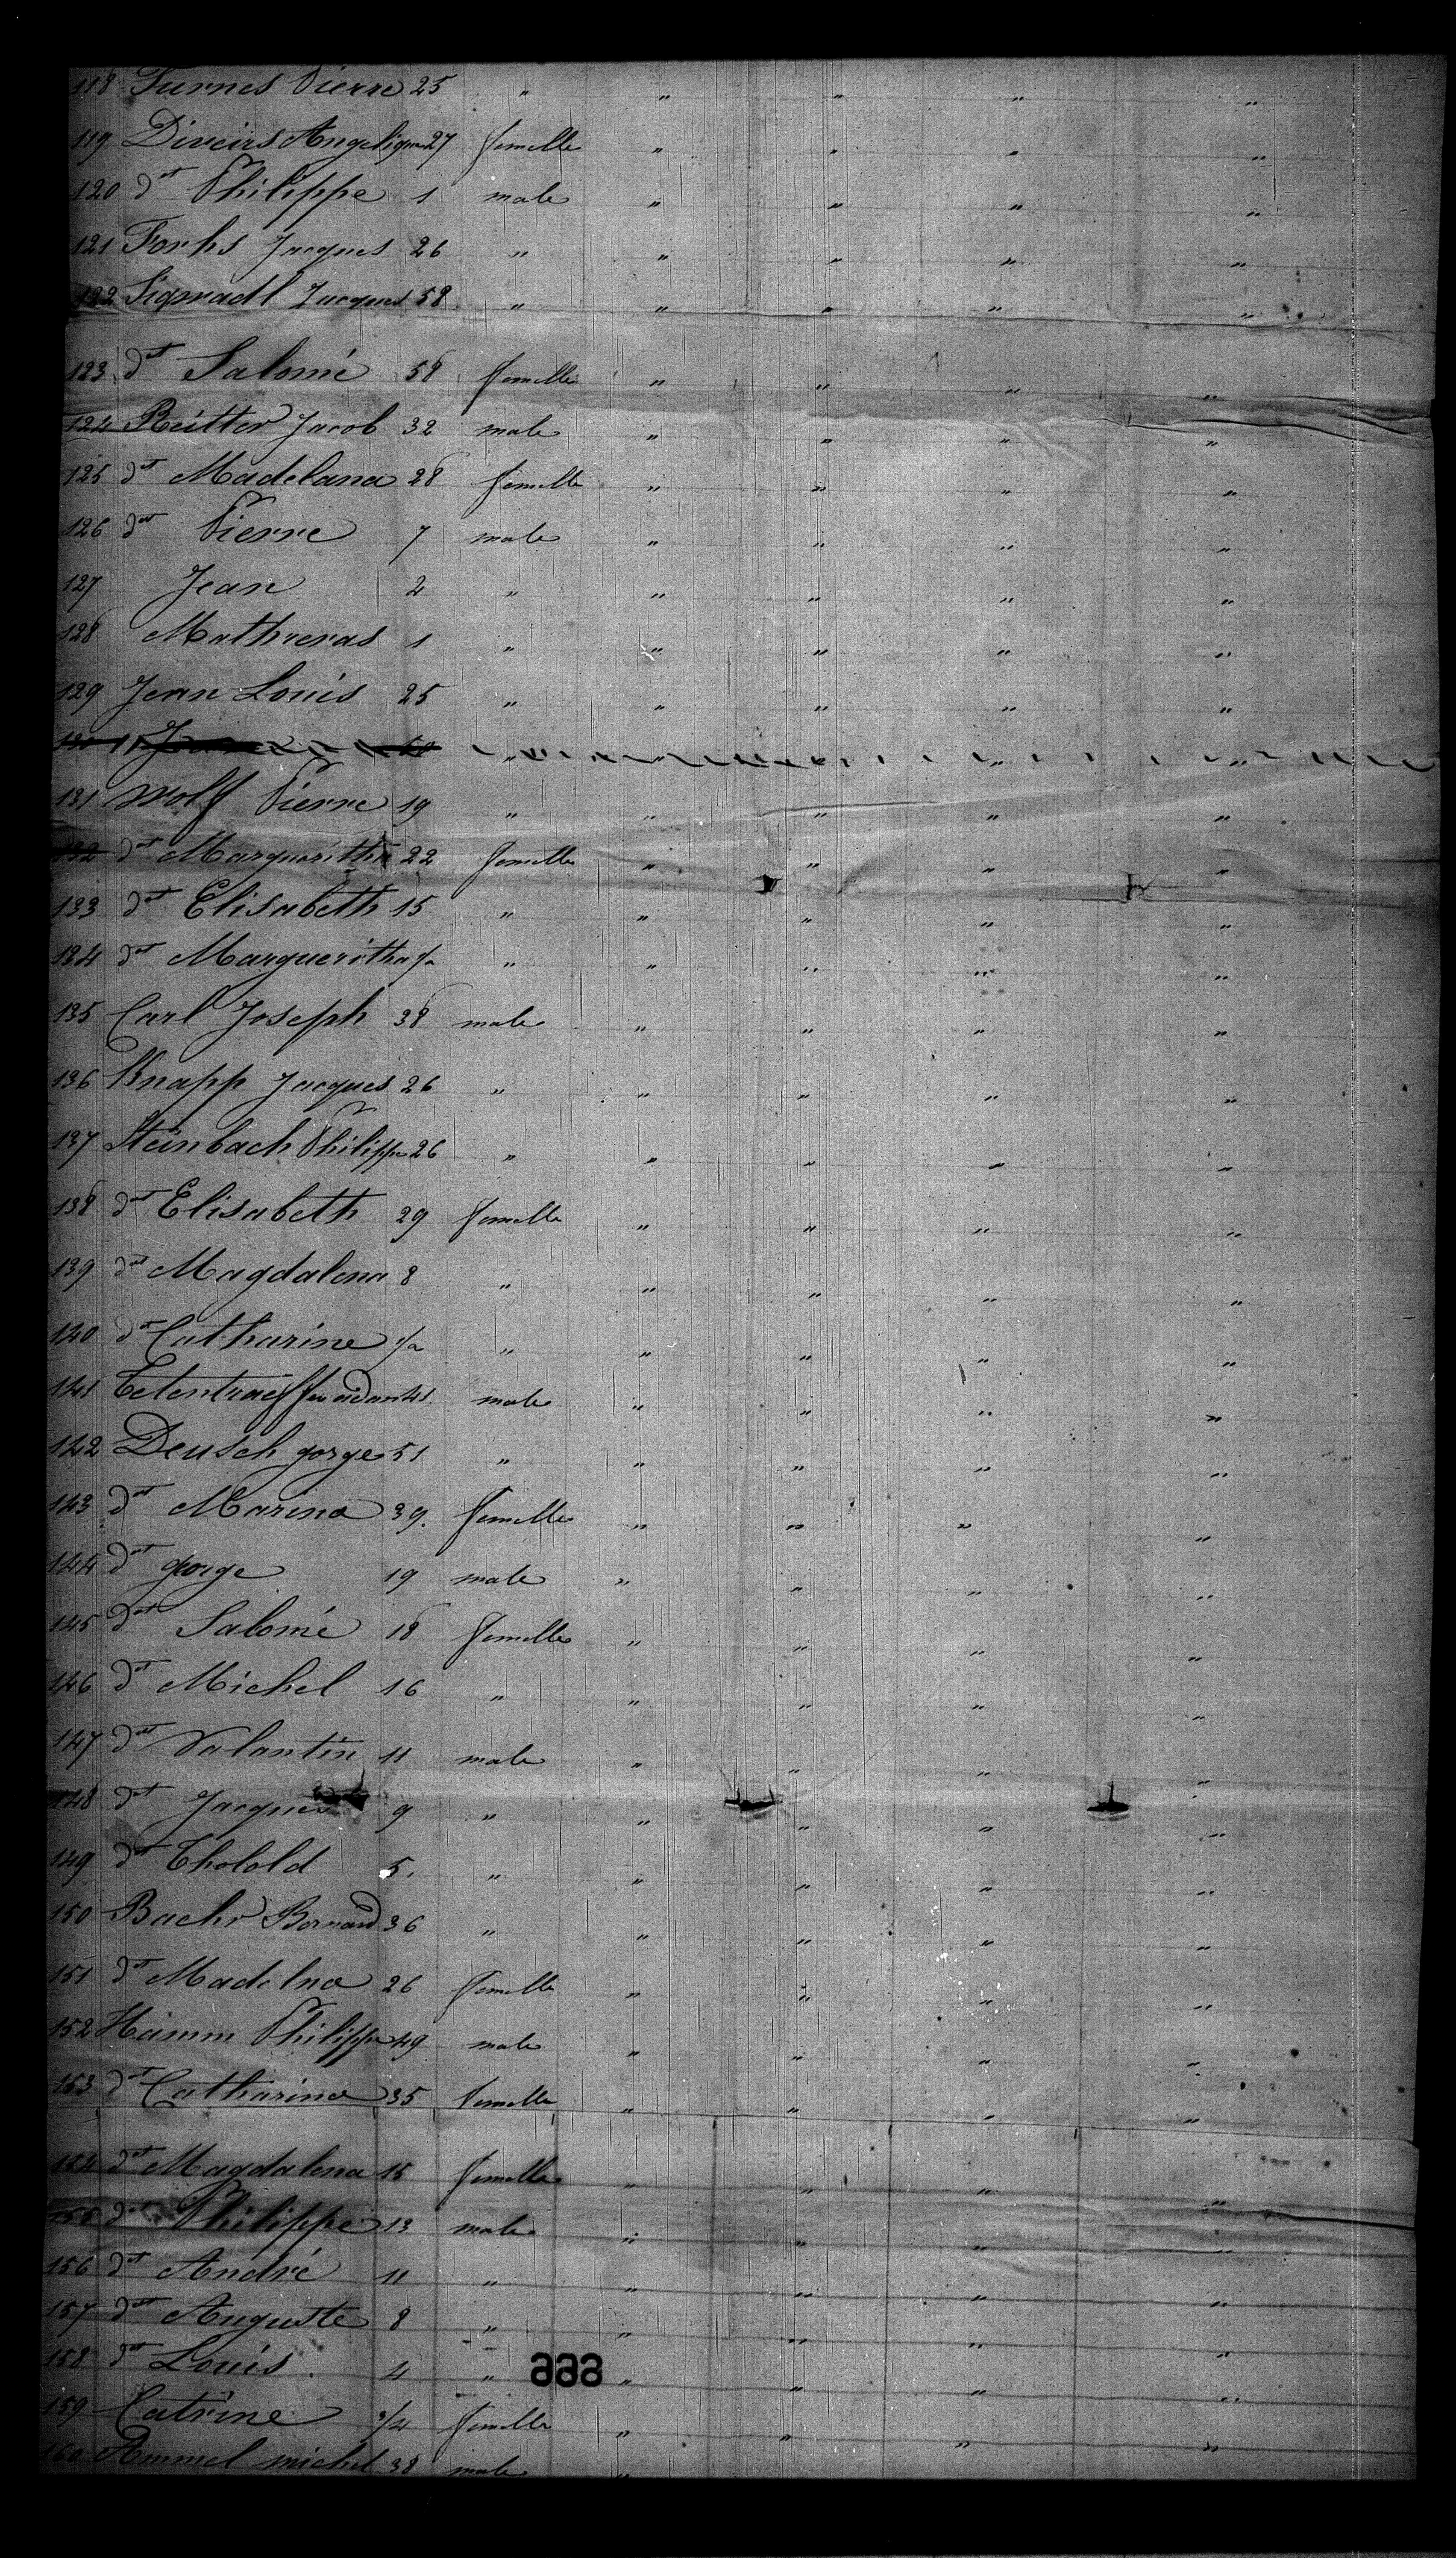 118 Furnes Pierre 25 " " " " "
119 Diveirs Angelique 27 femelle " " " "
120 dot Philippe 1 male " " " "
121 Forhs Jacques 26 " " " " "
122 Sigwadl Jacques 58 " " " " "
123 dot Salomé 58 femelle " " " "
124 Reitter Jacob 32 male " " " "
125 dot Madelana 28 femelle " " " "
126 dot Pierre 7 male " " " "
127 Jean 2 " " " " "
128 Mathieras 1 " " " " "
129 Jean Louis 25 " " " " "
130
131 Wolf Pierre 19 " " " " "
132 dot Margueritha 22 femelle " " " "
133 dot Elisabeth 15 " " " " "
134 dot Margueritha " " " " "
135 Carl Joseph 38 male " " " "
136 Knapp Jacques 26 " " " " "
137 Steinbach Philippe 26 " " " " "
138 dot Elisabeth 29 femelle " " " "
139 dot Magdalena 8 " " " " "
140 dot Catharine " " " " "
141 41 male " " " "
142 Deusch gorge 51 " " " " "
143 dot Marina 39. femelle " " " "
144 dot george 19 male " " " "
145 dot Salomé 18 femelle " " " "
146 dot Michel 16 " " " " "
147 dot Valantin 11 male " " " "
148 dot Jacques 9 " " " " "
149 dot Tholold 5. " " " " "
150 Bachr Bernard 36 " " " " "
151 dot Madelna 26 femelle " " " "
152 Hamm Philippe 49 male " " " "
153 dot Catharina 35 femelle " " " "
154 dot Magdalena 15 femelle " " " "
155 dot Philippe 13 male " " " "
156 dot André 11 " " " " "
157 dot Auguste 8 " " " " "
158 dot Louis. 4 " " " " "
159 Catrine 3/4 femelle " " " "
160 Ammel michel 38 male "